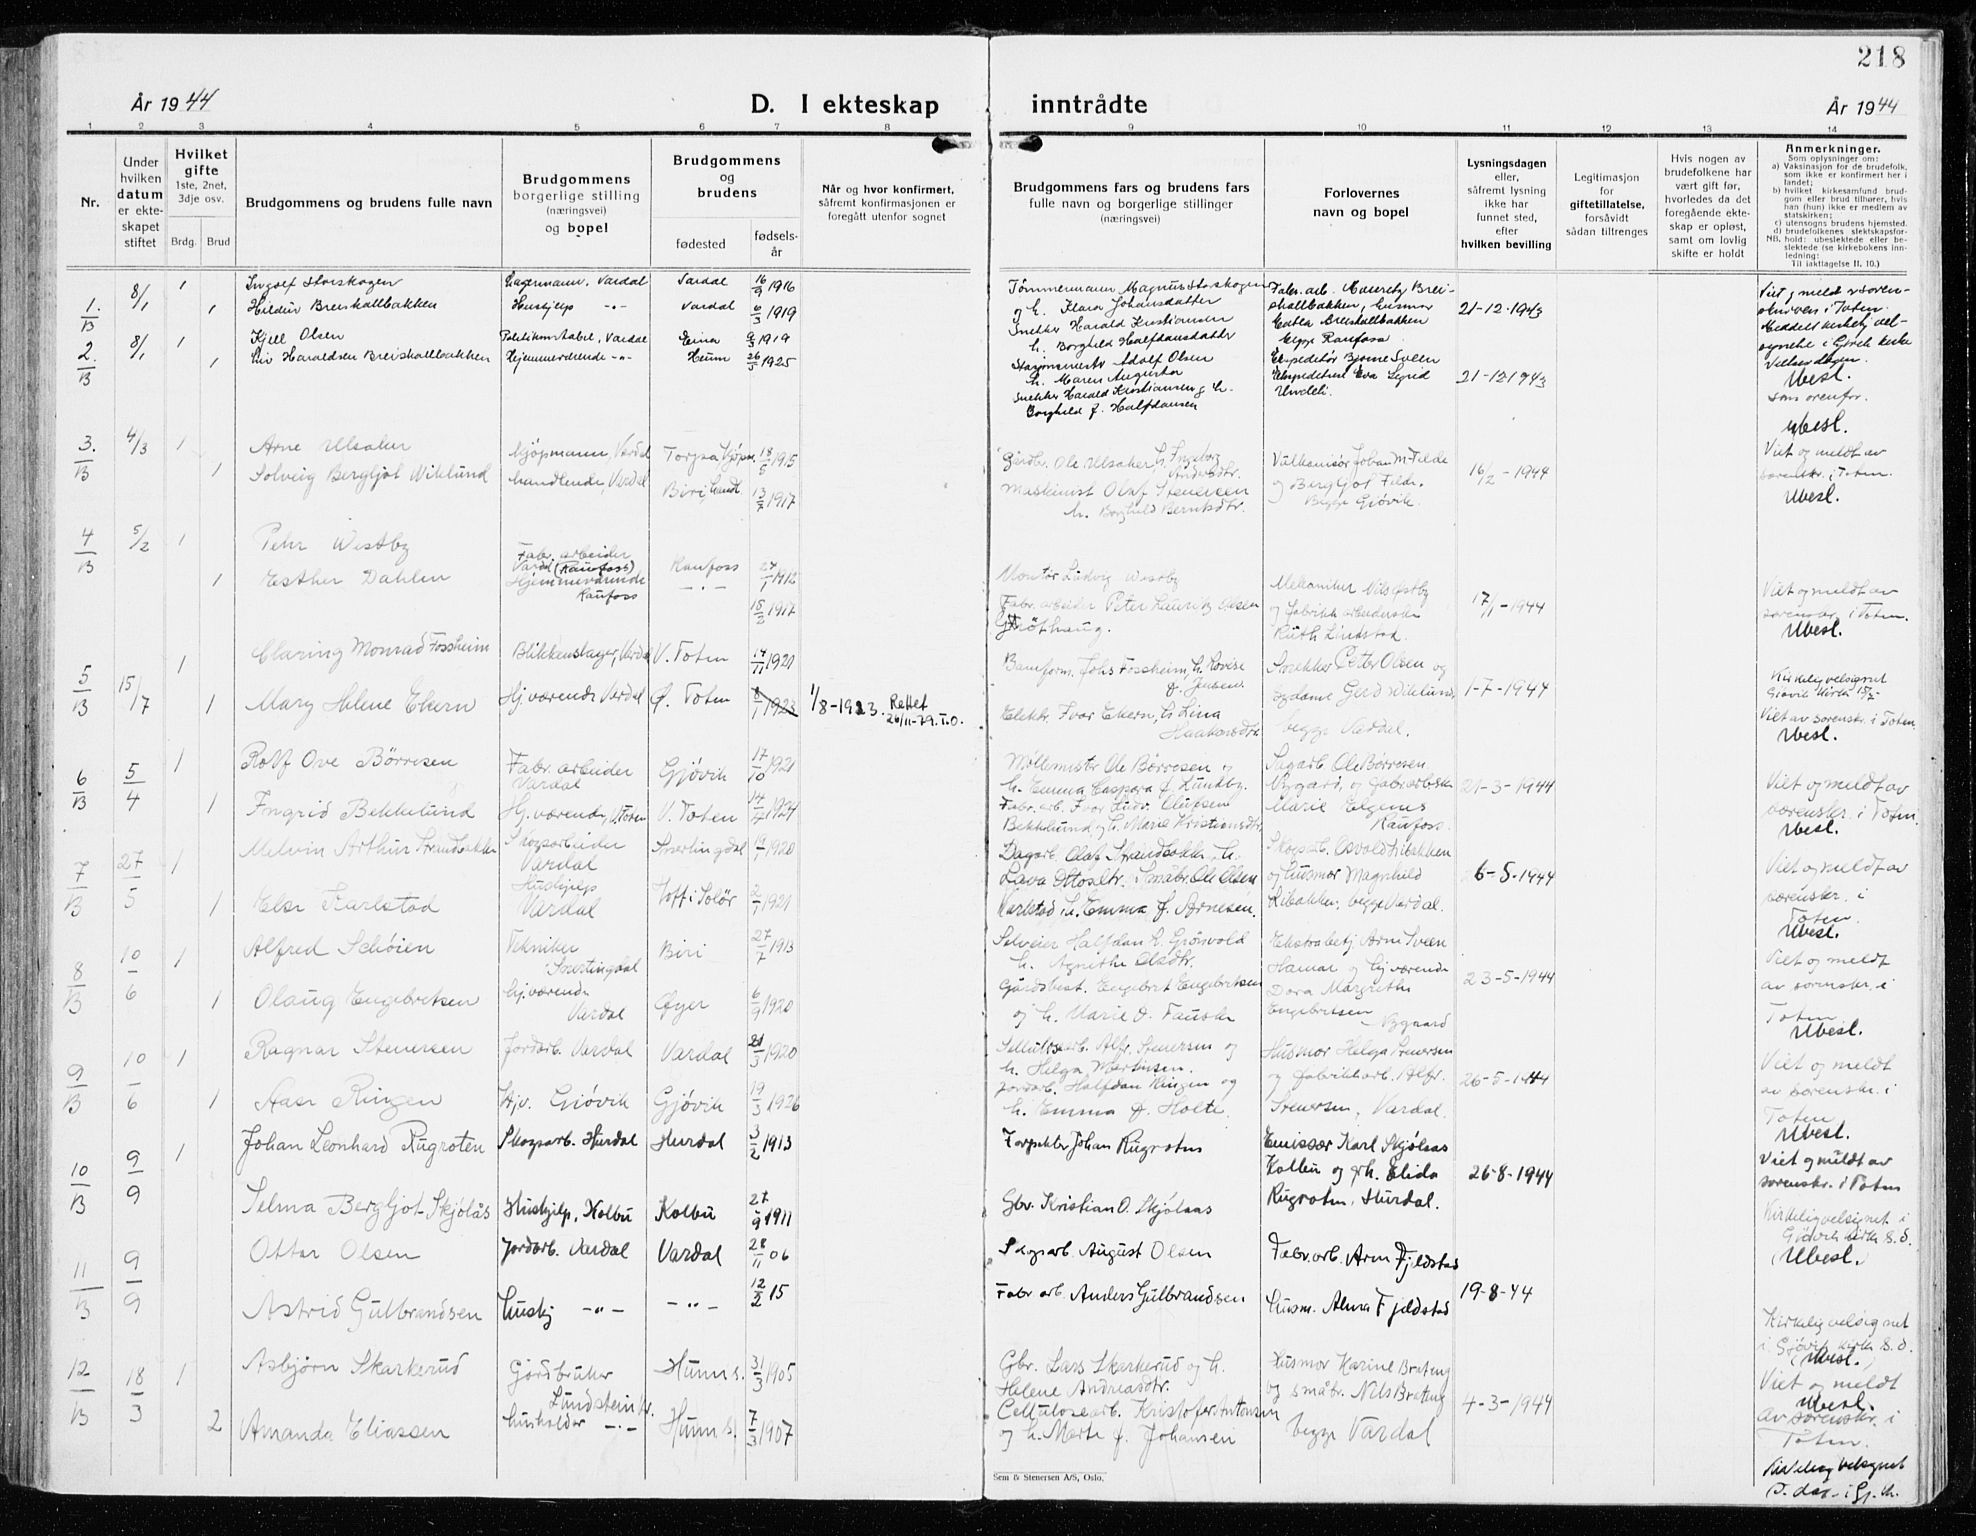 218
År 1944
D. I ekteskap inntrådte
År 1944
1 2 3 4 5 6 7 8 9 10 11 12 13 14
Nr.
Under hvilken datum er ekteskapet stiftet
Hvilket gifte
1ste, 2net, 3dje osv.
Brdg. Brud
Brudgommens og brudens fulle navn
Brudgommens borgerlige stilling (næringsvei) og bopel
Brudgommens og brudens
fødested
fødselsår
Når og hvor konfirmert, såfremt konfirmasjonen er foregått utenfor sognet
Brudgommens fars og brudens fars fulle navn og borgerlige stillinger (næringsvei)
Forlovernes navn og bopel
Lysningsdagen eller, såfremt lysning ikke har funnet sted, efter hvilken bevilling
Legitimasjon for giftetillatelse, forsåvidt sådan tiltrenges
Hvis nogen av brudefolkene har vært gift før, hvorledes da det foregående ekteskap er opløst, samt om lovlig skifte er holdt
Anmerkninger.
Som oplysninger om:
a) Vaksinasjon for de brudefolk, som ikke er konfirmert her i landet;
b) hvilket kirkesamfund brudgom eller brud tilhører, hvis han (hun) ikke er medlem av statskirken;
c) utensogns brudens hjemsted.
d) brudefolkenes slektskapsforhold: ubeslektede eller beslektede (se kirkebokens innledning:
NB. Til iakttagelse II. 10.)
1. B 8/1 1 Ingolf Storskogen Lagermann, Vardal Vardal 16/9 1916
1 Hildur Breiskallbakken Hushjelp -"- Vardal 6/3 1919
Tømmermann Magnus Storskogen
og h. Klara Johansdatter
Snekker Harald Kristiansen
h. Borghild Halfdansdatter
Fabr. arb. Mauritz Breiskallbakken, husmor
Breiskallbakken
begge Raufoss
21-12-1943
Viet og meldt av sorenskriveren i Toten.
Ubesl.
2. B 8/1 1 Kjell Olsen Politikonstabel, Vardal Eina 9/3 1919
1 Haraldsen Breiskallbakken Hjemmeværende -"- Hunn 26/5 1925
Stasjonsmestr Adolf Olsen
h. Maren Augusta
Snekker Harald Kristiansen og h.
Borghild f. Halfdansen
Ekspeditør Bjarne Sveen
Ekspeditrise Eva Sigrid
21-12 1943
som ovenfor.
Ubesl.
3. B 4/3 1 Arne Ulsaker Kjøpmann, Vardal 18/5 1915
1 Solveig Bergljot Wiklund handlende, Vardal Biri landl. 13/7 1917
Gårdbr. Ole Ulsaker h. Ingeborg
Maskinist Olaf Stenersen
h. Borghild Berntsdtr.
Vulkanisør Johan M. Filde
og Bergljot Filde.
Begge Gjøvik.
16/2 - 1944
Viet og meldt av
sorenskr. i Toten.
Ubesl.
4 B 5/2 1 Pehr Westby Fabr. arbeider
Vardal (Raufoss) Raufoss 24/1 1912
1 Esther Dahlen Hjemmeværende
Raufoss -"- 18/2 1917
Montør Ludvig Westby
Fabr. arbeider Peter Lauritz Olsen
Mekaniker Nils Østby
og fabrikkarbeiderske
Ruth Lindstad.
17/1 - 1944
Viet og meldt av
sorenskr. i Toten.
Ubesl.
5 B 15/7 1 Claring Monrad Fossheim Blikkenslager, Vardal V. Toten 14/11 1921
1 Mary Helene Ekern Hj.værende Vardal Ø. Toten 8/1 1923 1/8-1923. Rettet
26/11-79. T.O.
Johs Fossheim, h. Lovise
f. Jensen.
Elektr. Ivar Ekern, h. Lina
Haakonsdtr.
Snekker Petter Olsen og
Gerd Wiklund,
begge Vardal.
1-7-1944
Kirkelig velsignet
Gjøvik kirke 15/7-
Viet av sorenskr. i Toten.
Ubesl.
6 B 5/4 1 Rolf Ove Børresen Fabr. arbeider
Vardal Gjøvik 17/10 1921
1 Ingrid Bekkelund Hj.værende, V.Toten V. Toten 14/7 1924
Møllemstr. Ole Børresen og
h. Emma Caspara f. Lundby.
Fabr. arb. Ivar Ludv. Olufsen
Bekkelund, og h. Marie Kristiansdtr.
Sagarb. Ole Børresen
Nygard, og fabr.arbeiderske
Marie Elgenes
Raufoss.
21-3-1944
Viet og meldt av
sorenskr. i Toten.
Ubesl.
7 B 27/5 1 Melvin Arthur Strandbakke Skogsarbeider
Vardal Snertingdal 19/1 1920
1 Else Karlstad Hushjelp
Vardal Hoff i Solør 2/1 1921
Dagarb. Olaf Strandbakke, h.
Småbr. Ole Olsen
Karlstad, h. Emma f. Arnesen.
Skogsarb. Osvald Libakken
og husmor Magnhild
Libakken, begge Vardal.
26-5-1944
Viet og meldt av
sorenskr. i
Toten.
Ubesl.
8 B 10/6 1 Alfred Schøien Tekniker
Snertingdal Biri 27/7 1913
1 Olaug Engebretsen Hj.værende
Vardal Øyer 6/9 1920
Selveier Halfdan L. Grønvold
h. Agnethe Olsdtr.
Gårdsbest. Engebret Engebretsen
og h. Marie f. Fauske
Ekstrabetj. Arne Sveen
Hamar og hj.værende
Dora Margrethe
Engebretsen
- Nygaard
23-5-1944
Viet og meldt
av sorenskr. i
Toten
Ubesl.
9 B 10/6 1 Ragnar Stenersen Jordarb. Vardal Vardal 21/3 1920
1 Aase Ringen Hjv. Gjøvik Gjøvik 19/3 1926
Cellulosearb. Alfr. Stenersen og
h. Helga Martinsen.
Jordarb. Halfdan Ringen og
h. Emma f. Holte.
Husmor Helga Stenersen
og fabrikkarb. Alfr.
Stenersen, Vardal.
26-5-1944
Viet og meldt
av sorenskr. i
Toten
Ubesl.
10 B 9/9 1 Johan Leonhard Rugroten Skogsarb. Hurdal Hurdal 3/2 1913
Selma Bergljot Skjølås Hushjelp, Kolbu Kolbu 27/9 1911
Forpakter Johan Rugroten
Gbr. Kristian O. Skjølaas
Emissær Karl Skjølaas
Kolbu og frk. Elida
Rugroten, Hurdal.
26-8-1944
Viet og meldt av
sorenskr. i Toten
Kirkelig velsignet i
Gjøvik kirke s.d.
(Ubesl.)
11 B 9/9 Ottar Olsen Jordarb. Vardal Vardal 28/11 06
Astrid Gulbrandsen Hushj -"- -"- 12/2 15
Skogsarb. August Olsen
Fabr arb. Anders Gulbrandsen
Fabr.arb. Arne Fjeldstad
Husm. Alma Fjeldstad
19-8-44
Kirkelig velsignet
i Gjøvik kirke s.d.
(Ubesl.)
12 B 18/3 1 Asbjørn Skarkerud Gårdbruker Hunn s. 31/3 1905
2 Amanda Eliassen husholder -"- Hunn s. 7/3 1907
Gbr. Lars Skarkerud og h.
Helene Andreasdtr.
Cellulosearb. Kristofer Antonsen
og h. Marte f. Johansen
Husmor Karine Brateng
og småbr. Nils Brateng
begge Vardal
4-3-1944
Viet og meldt
Ubesl.
av sorenskr. i
Toten.
Kirkelig velsignet
s. dag i Gj. k.
Sem & Stenersen A/S, Oslo.